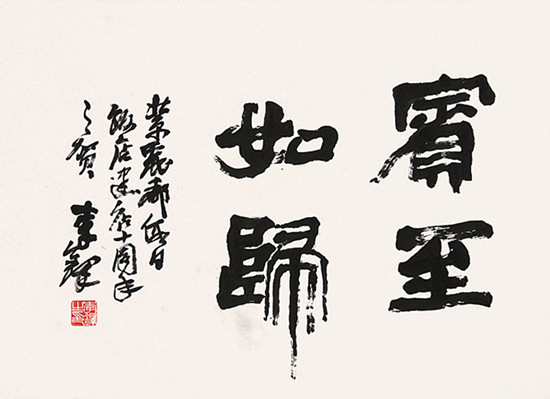 賓至
如歸
北京麗都假日
飯店建店十周年
之賀 李鐸